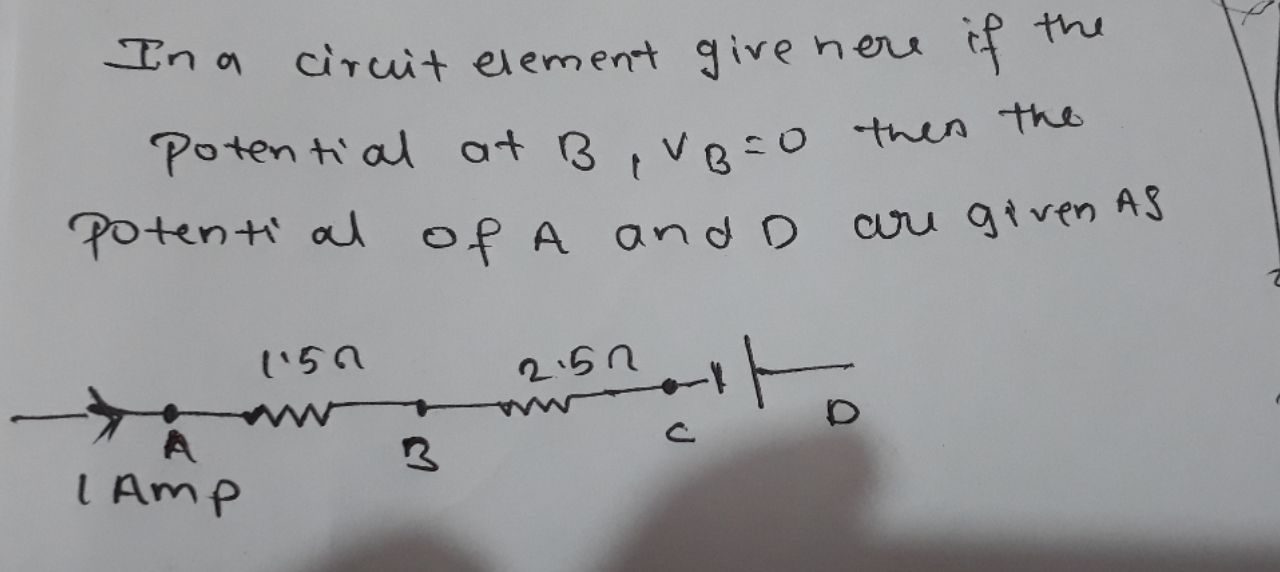 In a circuit element give here if the
Potential at B, VB=0 then the
Potential of A and D are given AS
1.5Ω 2.5Ω
A B C D
1 Amp